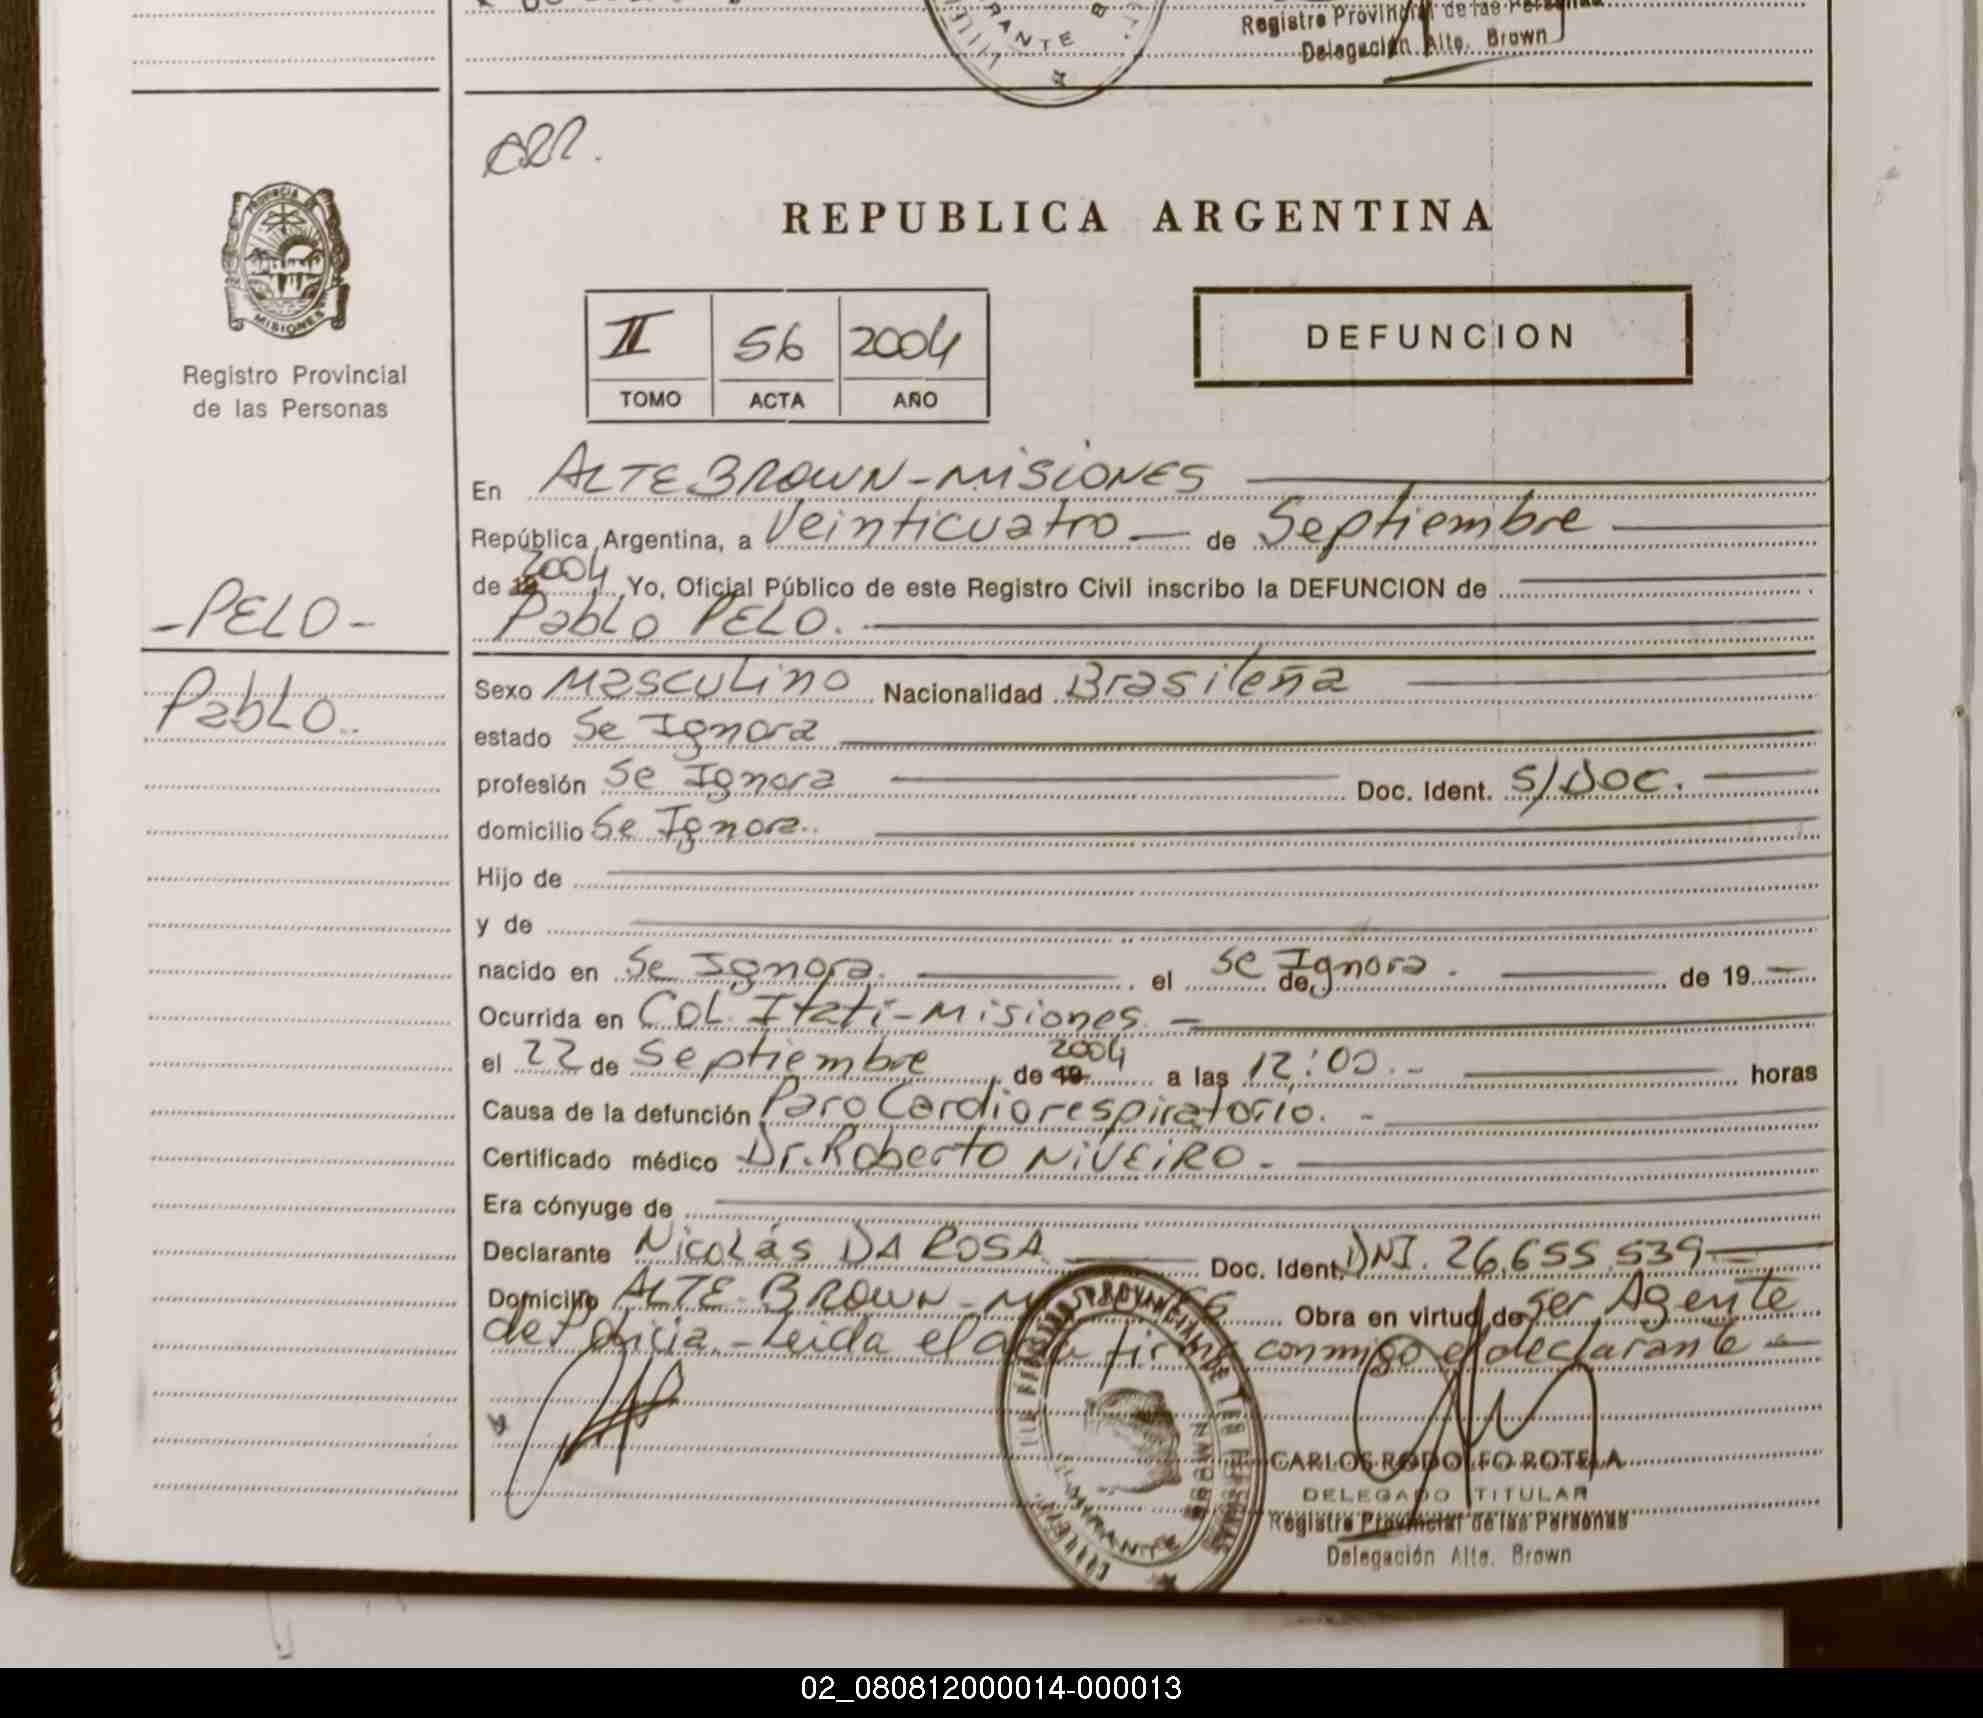 RANTE B
Registro Provincial de las Personas
Delegación Alte. Brown
REPUBLICA ARGENTINA
PROVINCIA DE
MISIONES
Registro Provincial
de las Personas
II 56 2004
TOMO ACTA AÑO
DEFUNCION
En ALTE BROWN - MISIONES
República Argentina, a Veinticuatro de Septiembre
de 19 2004 Yo, Oficial Público de este Registro Civil inscribo la DEFUNCION de
- PELO - Pablo PELO.
Pablo..
Sexo Masculino Nacionalidad Brasileña
estado Se Ignora
profesión Se Ignora Doc. Ident. S/Doc.
domicilio Se Ignora..
Hijo de
y de
nacido en Se Ignora. el Se Ignora. de de 19
Ocurrida en Col. Itati - Misiones. -
el 22 de Septiembre de 19 2004 a las 12:00. - horas
Causa de la defunción Paro Cardiorespiratorio. -
Certificado médico Dr. Roberto NIVEIRO -
Era cónyuge de
Declarante Nicolás DA ROSA Doc. Ident. DNI. 26.655.539
Domicilio ALTE. BROWN - Obra en virtud de Ser Agente
de Policia - Leida el acta firma conmigo el declarante -
CARLOS RODOLFO ROTELA
DELEGADO TITULAR
Registro Provincial de las Personas
Delegación Alte. Brown
REGISTRO PROVINCIAL DE LAS PERSONAS
ALMIRANTE BROWN
02_080812000014-000013